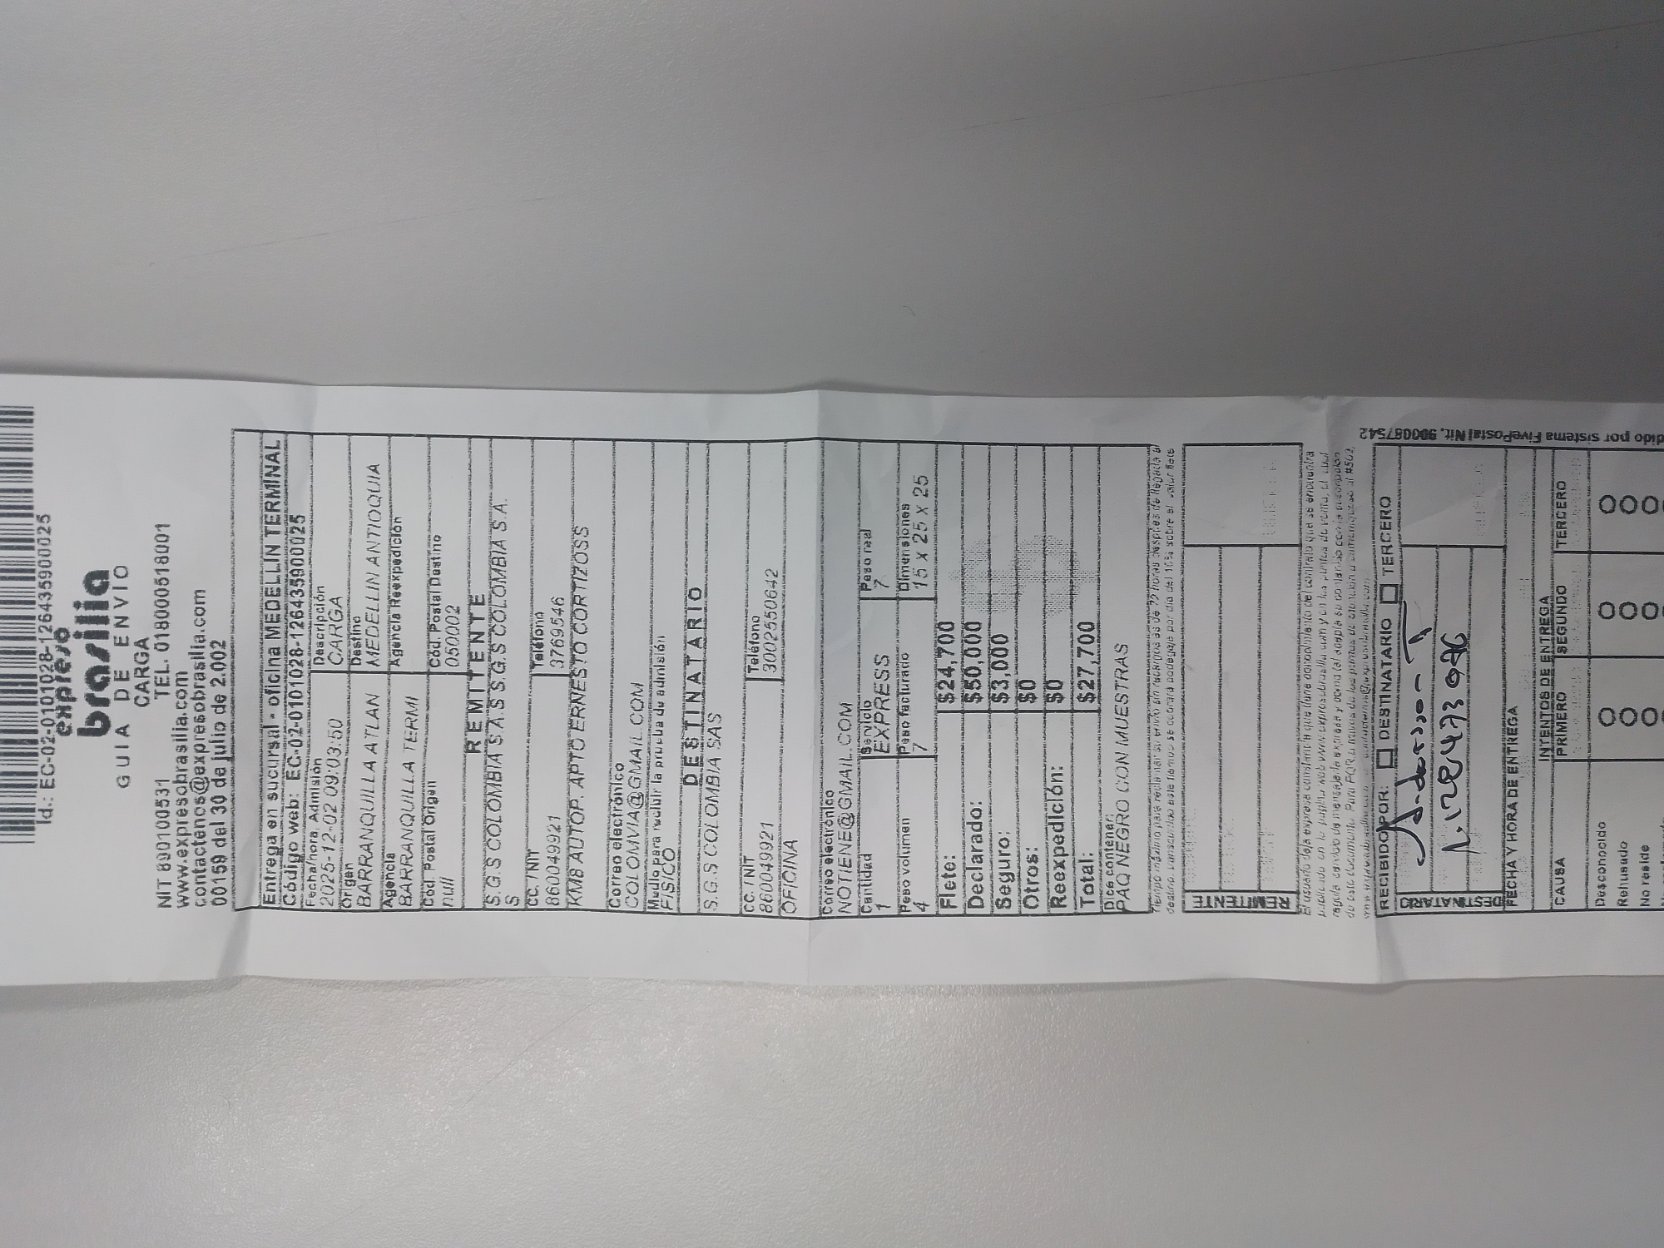 Id.: EC-02-0101028-1264359000​25
expreso
brasilia
GUIA DE ENVIO
CARGA
NIT 890100531 TEL. 018000518001
www.expresobrasilia.com
contactenos@expresobrasilia.com
00159 del 30 de julio de 2.002
Entrega en sucursal - oficina MEDELLIN TERMINAL
Código web: EC-02-0101028-126435900025
Fecha/hora Admisión Descripción
2025-12-02 09:03:50 CARGA
Origen Destino
BARRANQUILLA ATLAN MEDELLIN ANTIOQUIA
Agencia Agencia Reexpedición
BARRANQUILLA TERMI
Cód. Postal Origen Cód. Postal Destino
null 050002
REMITENTE
S.G.S COLOMBIA S A S S.G.S COLOMBIA S.A.
S
CC. / NIT Teléfono
860049921 3769546
KM8 AUTOP. APTO ERNESTO CORTIZOSS
Correo electrónico
COLOMVIA@GMAIL.COM
Medio para recibir la prueba de admisión
FISICO
DESTINATARIO
S.G.S COLOMBIA SAS
CC. / NIT Teléfono
860049921 3002550642
OFICINA
Correo electrónico
NOTIENE@GMAIL.COM
Cantidad Servicio Peso real
1 EXPRESS 7
Peso volumen Peso facturado Dimensiones
4 7 15 X 25 X 25
Flete: $24,700
Declarado: $50,000
Seguro: $3,000
Otros: $0
Reexpedición: $0
Total: $27,700
Dice contener:
PAQ NEGRO CON MUESTRAS
REMITENTE
RECIBIDO POR: DESTINATARIO TERCERO
DESTINATARIO
FECHA Y HORA DE ENTREGA
INTENTOS DE ENTREGA
CAUSA PRIMERO SEGUNDO TERCERO
Desconocido
Rehusado
No reside
dido por sistema FivePostal Nit. 900087542